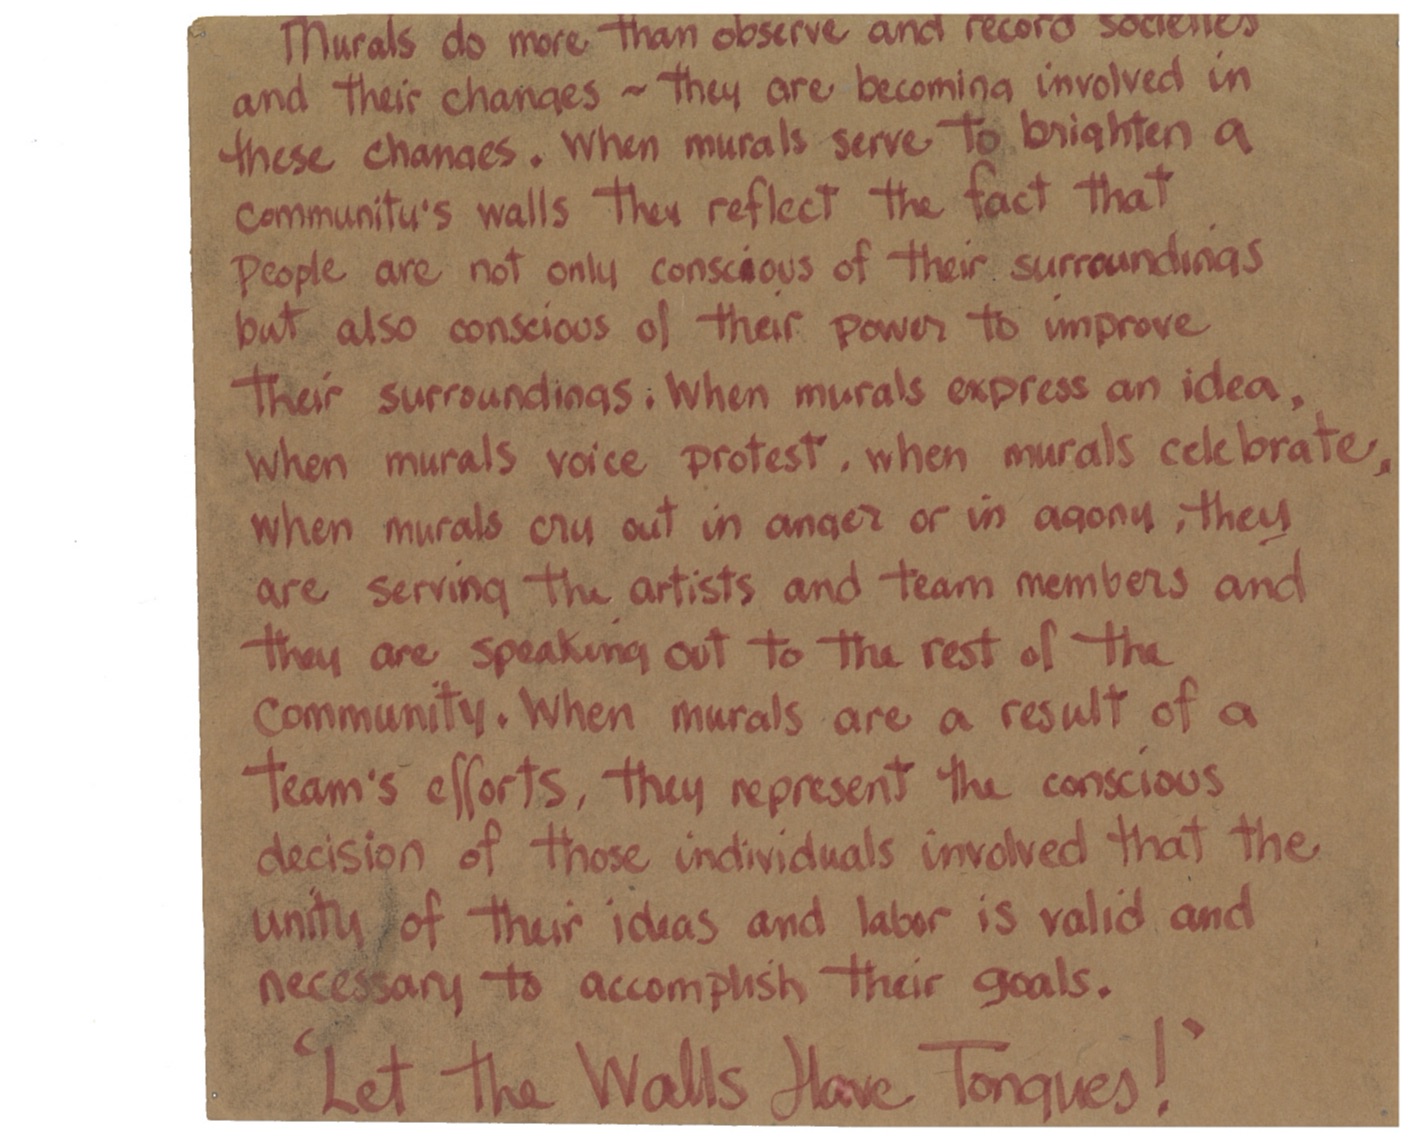 Murals do more than observe and record societies
and their changes ~ they are becoming involved in
these changes. When murals serve to brighten a
community's walls they reflect the fact that
People are not only conscious of their surroundings
but also conscious of their power to improve
their surroundings. When murals express an idea,
when murals voice protest, when murals celebrate,
when murals cry out in anger or in agony, they
are serving the artists and team members and
they are speaking out to the rest of the
community. When murals are a result of a
team's efforts, they represent the conscious
decision of those individuals involved that the
unity of their ideas and labor is valid and
necessary to accomplish their goals.
'Let the Walls Have Tongues!'